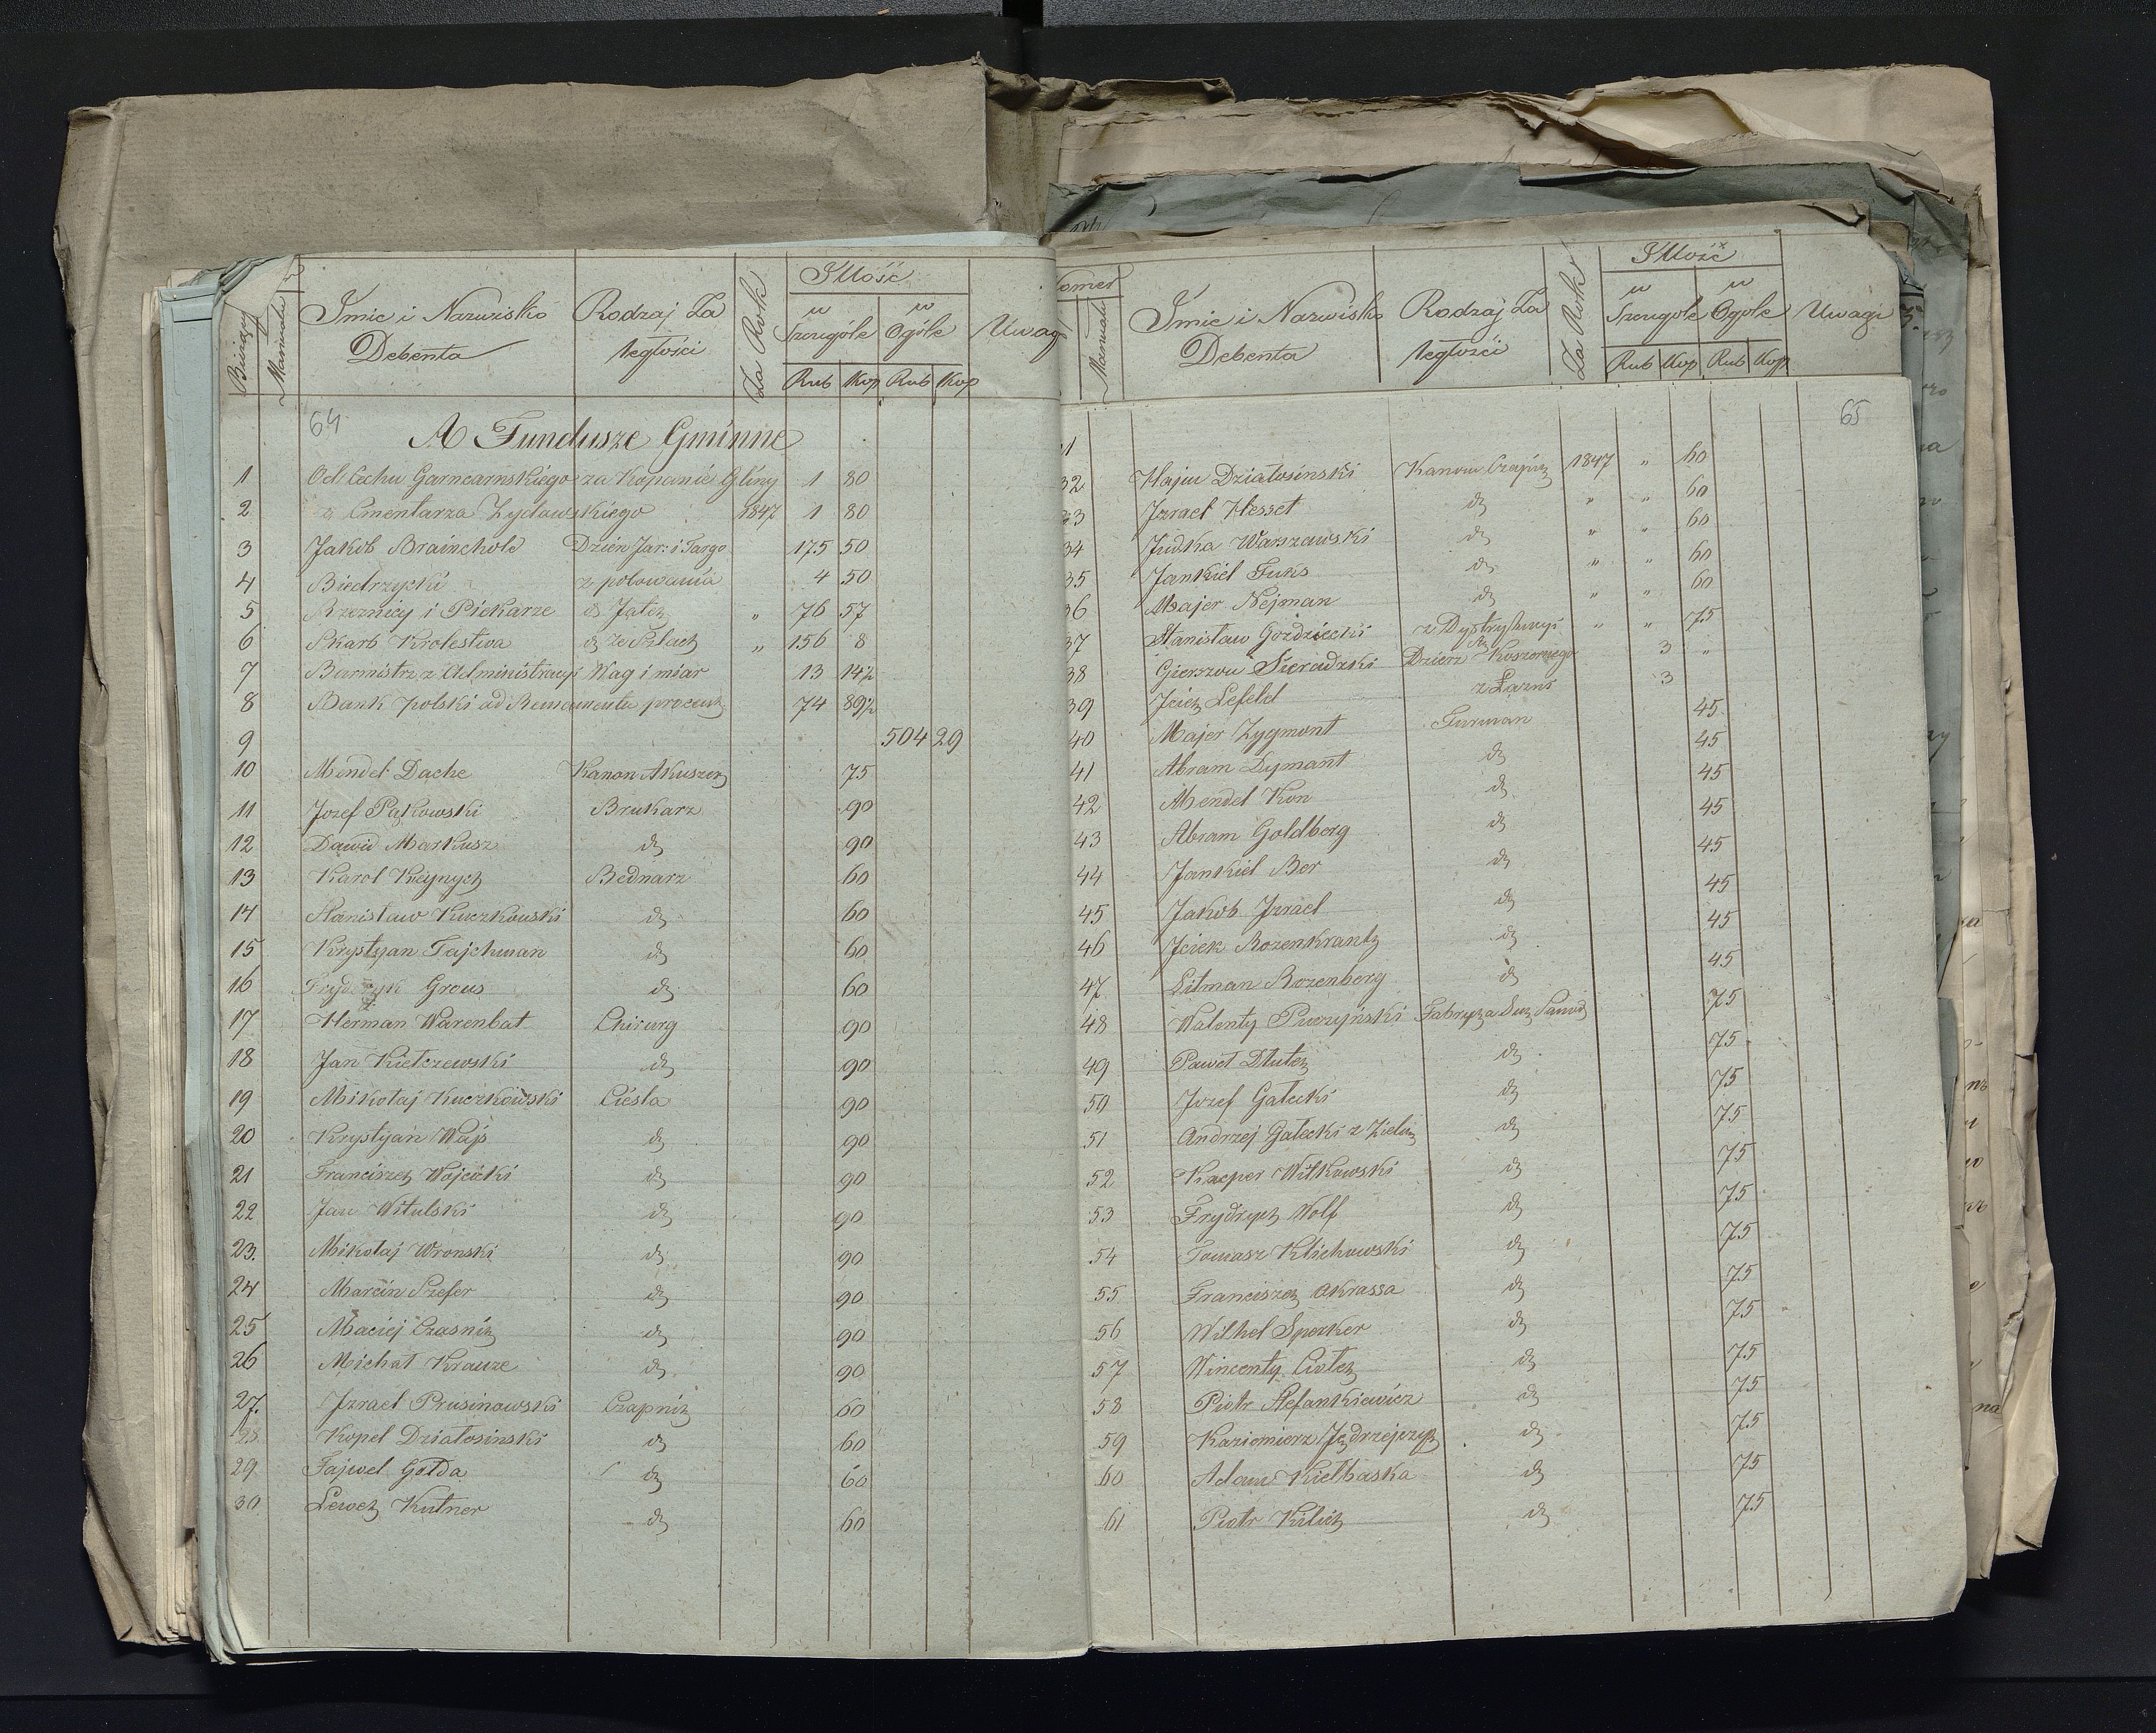 Bieżący Manuału
Imie i Nazwisko
Debenta
Rodzaj Za
ległości
Za Rok
Illość
w Szczególe
w Ogóle
Uwag
Rub Kop Rub Kop
64
A Fundusze Gminne
1 Od Cechu Garncarnskiego za Kopanie Gliny 1 80
2 z Cmentarza Zydowskiego 1847 1 80
3 Jakob Brainchold Dzien Jar: i Targo 175 50
4 Biedrzycki z polowania 4 50
5 Rzeznicy i Piekarze Jatek " 76 57
6 Skarb Krolestwa " 156 8
7 Burmistrz z Administracyi Wag i miar 13 14½
8 Bank polski od procent 74 89½
9 504 29
10 Mendel Dache Kanon Akuszer 75
11 Jozef Pąkowski Brukarz 90
12 Dawid Markusz d 90
13 Karol Kieynych Bednarz 60
14 Stanisław Kuczkowski d 60
15 Krystyan Tajchman d 60
16 Frydrzyk Grous d 60
17 Herman Warenbat Chirurg 90
18 Jan Kiełczewski d 90
19 Mikołaj Kuczkowski Ciesla 90
20 Krystyan Wajs d 90
21 Franciszek Wojcicki d 90
22 Jan Witulski d 90
23. Mikołaj Wronski d 90
24 Marcin Szefer d 90
25 Maciej Czasnik d 90
26 Michał Krauze d 90
27. Jzrael Prusinowski Czapnik 60
28. Kopel Działosinski d 60
29. Fajwel Gołda d 60
30. Lewek Kutner d 60
omer
Manuału
Imie i Nazwisko
Debenta
Rodzaj Za
ległości
Za Rok
Illość
w Szczególe
w Ogóle
Uwagi
Rub Kop Rub Kop
65
1
32 Hajm Działosinski Kanon Czapnik 1847 " 60
33 Jzrael Hessel d " " 60
34 Judka Warszawski d " " 60
35 Jankiel Fuks d " " 60
36 Majer Nejman d " " 60
37 Stanisław Gozdziecki z Dystrybucyi " " 75
38 Gierszon Sieradzki Dzierz Koszernego 3 "
39 Jciek Lefeld z Łazni 3
40 Majer Zygmont Furman 45
41 Abram Dymant d 45
42 Mendel Kon d 45
43 Abram Goldberg d 45
44 Jankiel Ber d 45
45 Jakob Jzrael d 45
46 Jciek Rozenkrantz d 45
47 Litman Rozenberg d 45
48 Walenty Puczynski 75
49 Paweł Dłutek d 75
50 Jozef Gałecki d 75
51 Andrzej Gałecki z d 75
52 Kacper Witkowski d 75
53 Frydrych Wolf d 75
54 Tomasz Klichowski d 75
55 Franciszek Okrassa d 75
56 Wilhel Sperker d 75
57 Wincenty Ciołek d 75
58 Piotr Stefankiewicz d 75
59 Kazimierz Jędrzejczyk d 75
60 Adam Kiełbaska d 75
61 Piotr Kilich d 75